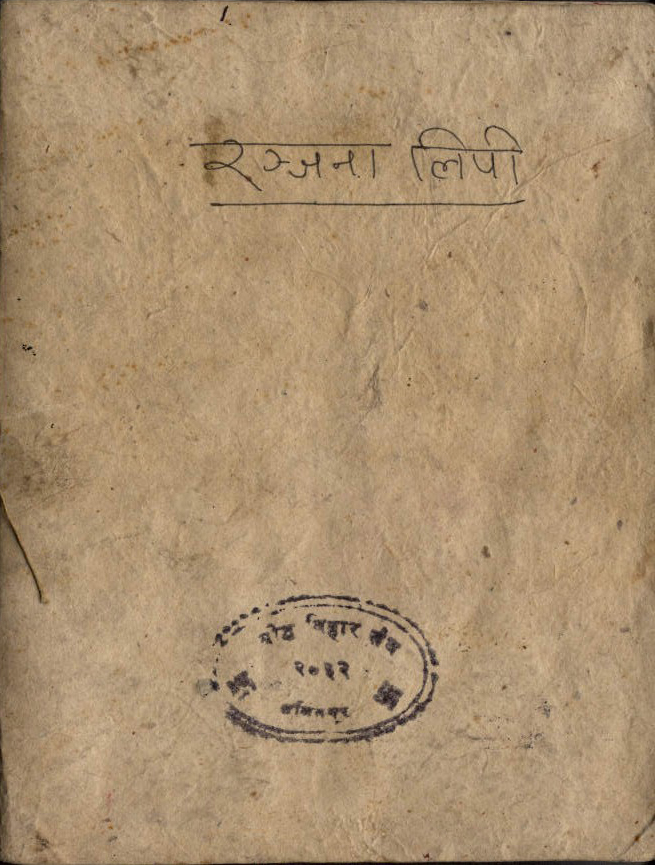 रञ्जना लिपी
बौद्ध विहार संघ
२०३२
ललितपुर